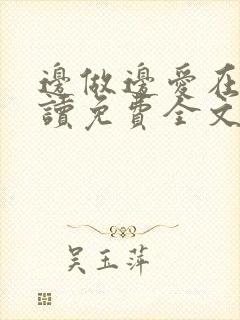 邊做邊愛在
讀免費全文
吳玉萍